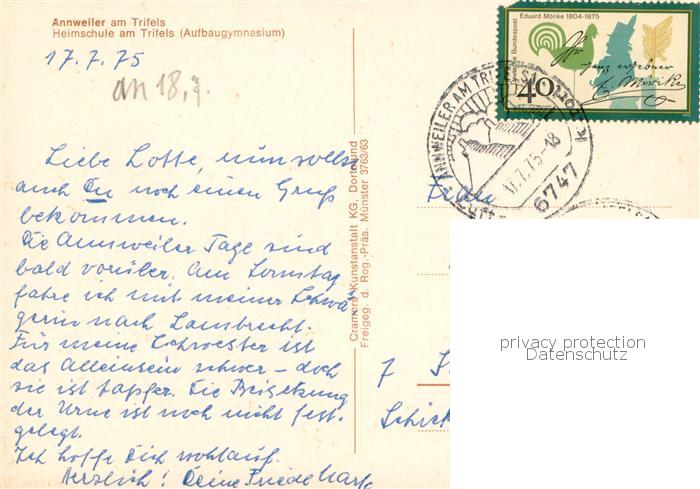 Annweiler am Trifels
Heimschule am Trifels (Aufbaugymnasium)
17.7.75
an 18,7.
Liebe Lotte, nun sollst
auch Du noch einen Gruß
bekommen.
Die Annweiler Tage sind
bald vorüber. Am Sonntag
fahre ich mit meiner Schwä-
gerin nach Lambrecht.
Für meine Schwester ist
das Alleinsein schwer – doch
sie ist tapfer. Die Beisetzung
der Urne ist noch nicht fest-
gelegt.
Ich hoffe Dich wohlauf.
Herzlich! Deine Friede
Cramers Kunstanstalt KG, Dortmund
Freigeg. d. Reg.-Präs. Münster 3763/63
Eduard Mörike 1804-1875
Deutsche Bundespost
40
E. Mörike
ANNWEILER AM TRIFELS
17.7.75-18
6747
Frau
7 St
Schick
privacy protection
Datenschutz